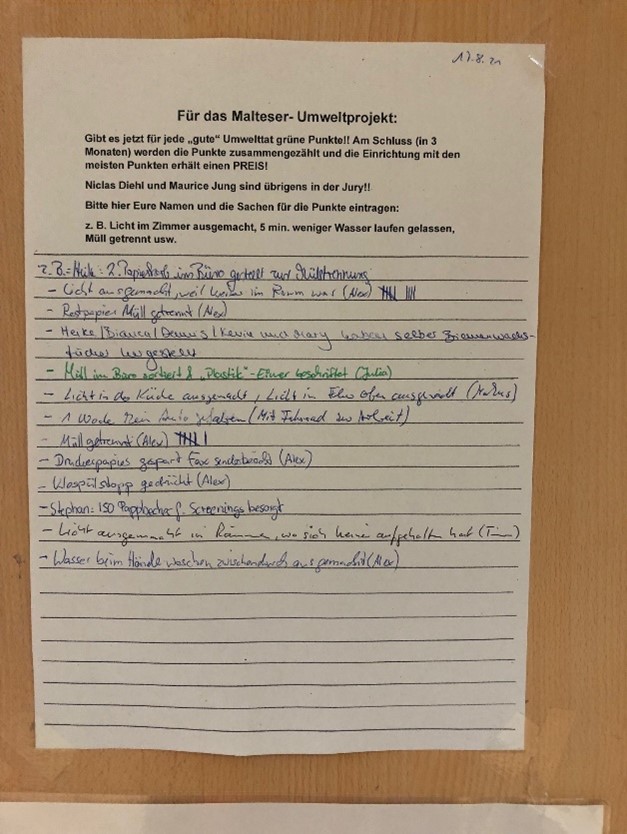 17.8.21
Für das Malteser- Umweltprojekt:
Gibt es jetzt für jede „gute“ Umwelttat grüne Punkte!! Am Schluss (in 3
Monaten) werden die Punkte zusammengezählt und die Einrichtung mit den
meisten Punkten erhält einen PREIS!
Niclas Diehl und Maurice Jung sind übrigens in der Jury!!
Bitte hier Eure Namen und die Sachen für die Punkte eintragen:
z. B. Licht im Zimmer ausgemacht, 5 min. weniger Wasser laufen gelassen,
Müll getrennt usw.
z.B. 2 im Büro gestellt zur Mülltrennung
- Licht ausgemacht, weil keiner im Raum war (Alex)
- Restpapier Müll getrennt (Alex)
- Heike/Bianca/Dennis/Kevin und Mary haben selber Bienenwachs-
tücher hergestellt
- Müll im Büro sortiert & „Plastik“-Eimer beschriftet (Julia)
- Licht in der Küche ausgemacht, Licht im Flur oben ausgemacht
- 1 Woche kein Auto gefahren (Mit Fahrrad zur Arbeit)
- Müll getrennt (Alex)
- Druckerpapier gespart Fax (Alex)
- Wasserstopp gedrückt (Alex)
- Stephan: 150 Pappbecher f. Screenings besorgt
- Licht ausgemacht in Räumen, wo sich keiner aufgehalten hat
- Wasser beim Hände waschen zwischendurch ausgemacht (Alex)